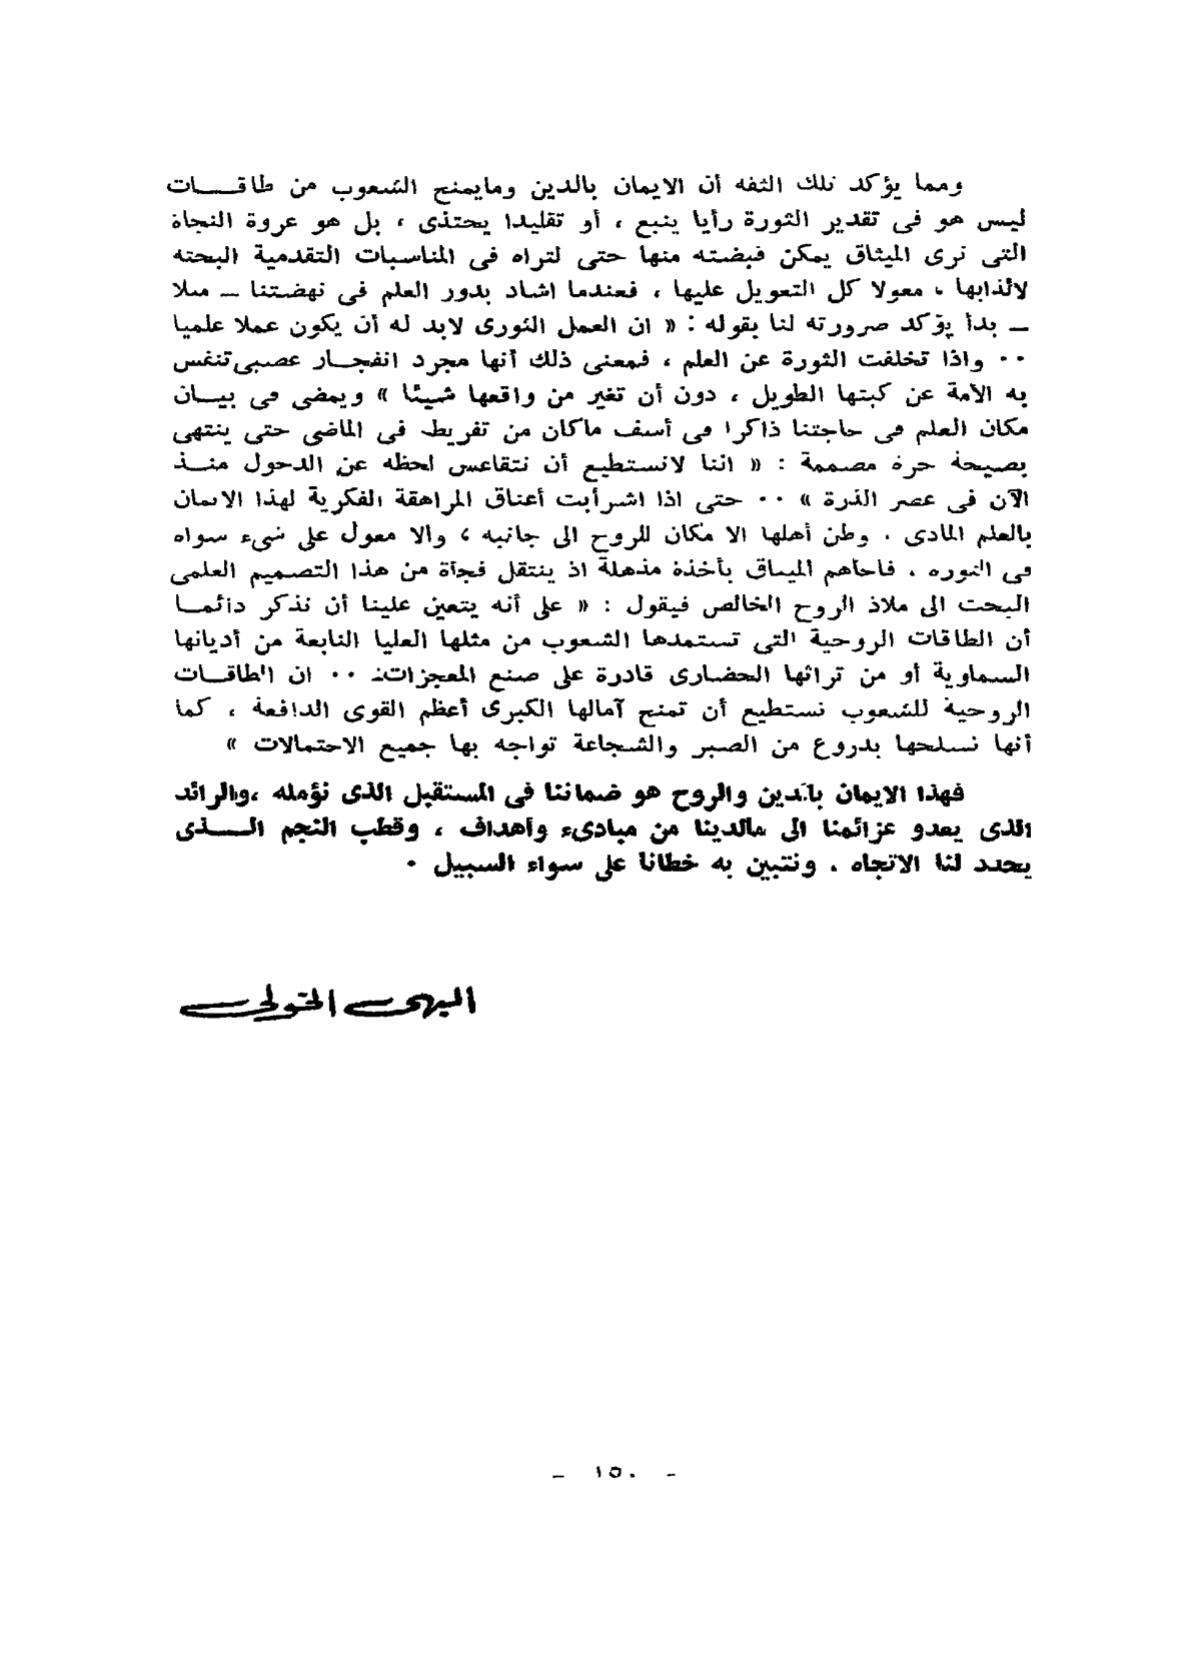 ومما يؤكد تلك الثقه أن الايمان بالدين ومايمنح الشعوب من طاقـــات
ليس هو فى تقدير الثورة رأيا ينبع ، أو تقليدا يحتذى ، بل هو عروة النجاة
التى ترى الميثاق يمكن قبضته منها حتى لتراه فى المناسبات التقدمية البحته
لائذابها ، معولا كل التعويل عليها ، فعندما اشاد بدور العلم فى نهضتنا ــ مثلا
ــ بدأ يؤكد ضرورته لنا بقوله : « ان العمل الثورى لابد له أن يكون عملا علميا
٠٠ واذا تخلفت الثورة عن العلم ، فمعنى ذلك أنها مجرد انفجــار عصبى تنفس
به الأمة عن كبتها الطويل ، دون أن تغير من واقعها شيئا » ويمضى فى بيــان
مكان العلم فى حاجتنا ذاكرا فى أسف ماكان من تفريط فى الماضى حتى ينتهى
بصيحة حرة مصممة : « اننا لانستطيع أن نتقاعس لحظه عن الدخول منــذ
الآن فى عصر الذرة » ٠٠ حتى اذا اشرأبت أعناق المراهقة الفكرية لهذا الايمان
بالعلم المادى ، وظن أهلها الا مكان للروح الى جانبه ، والا معول على شىء سواه
فى الثوره ، فاجأهم الميثاق بأخذة مذهلة اذ ينتقل فجأة من هذا التصميم العلمى
البحت الى ملاذ الروح الخالص فيقول : « على أنه يتعين علينا أن نذكر دائمــا
أن الطاقات الروحية التى تستمدها الشعوب من مثلها العليا النابعة من أديانها
السماوية أو من تراثها الحضارى قادرة على صنع المعجزات ٠٠ ان الطاقــات
الروحية للشعوب تستطيع أن تمنح آمالها الكبرى أعظم القوى الدافعة ، كما
أنها تسلحها بدروع من الصبر والشجاعة تواجه بها جميع الاحتمالات »
فهذا الايمان بالدين والروح هو ضماننا فى المستقبل الذى نؤمله ،والرائد
الذى يحدو عزائمنا الى مالدينا من مبادىء وأهداف ، وقطب النجم الـــذى
يحدد لنا الاتجاه ، ونتبين به خطانا على سواء السبيل ٠
البهى الخولى
ــ ١٥٠ ــ